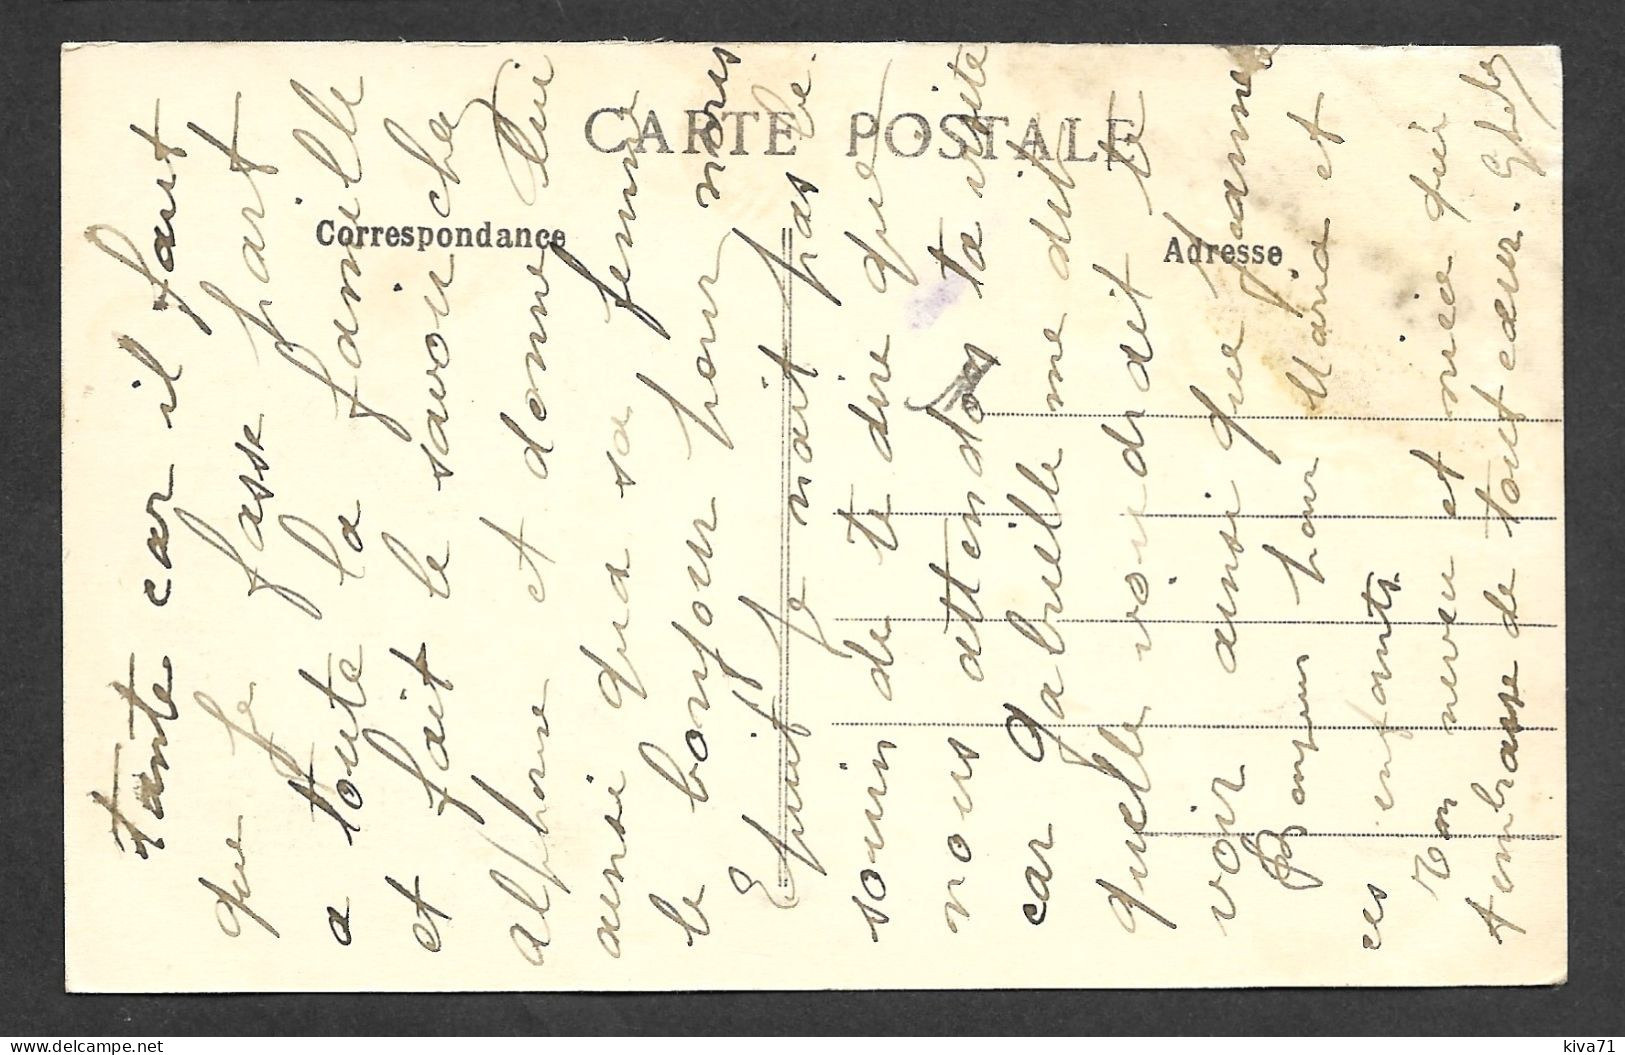 CARTE POSTALE
Correspondance
Adresse
tante car il faut
que je fasse part
a toute la famille
et fait le savoir chez
alphonse et donne lui
ainsi qua sa femme
le bonjour pour nous
Ensuit je nait pas be
souin de te dire que
nous attendos ta visite
car gabrielle me dit
quelle voudrait te
voir ainsi que jeanne
Bonjour pour Maria et
ces enfants.
Ton neveu et niéce qui
t embrasse de tout cœur.
kiva71